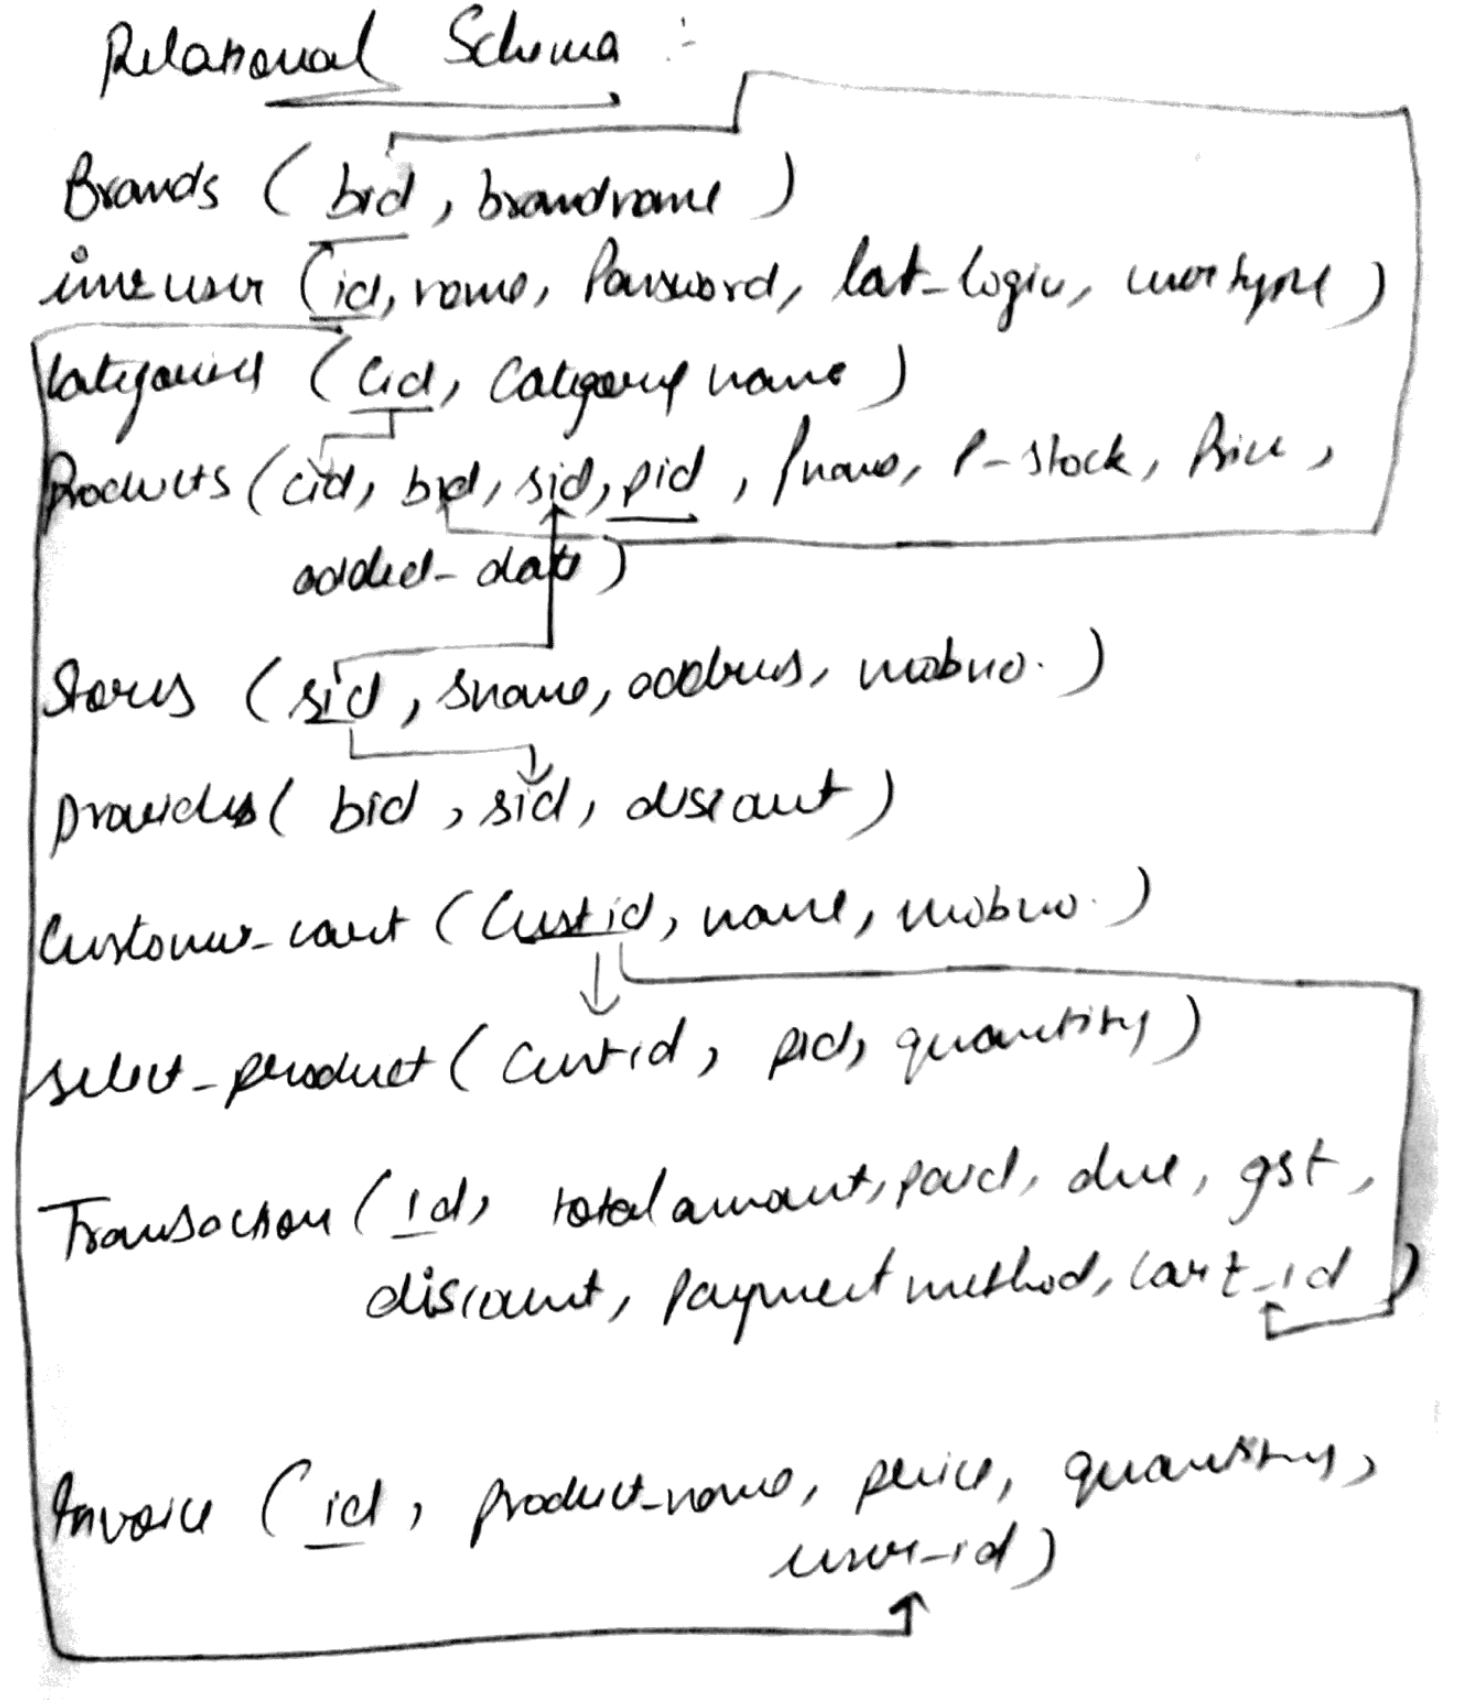 Relational Schema :-
Brands ( bid, brandname )
inv user (id, name, Password, lat_login, usertype )
Categories ( Cid, Category name )
Products ( cid, bid, sid, pid, pname, P-stock, Price,
added_date )
Stores ( sid, sname, address, mobno. )
provides ( bid, sid, discount )
Customer_cart ( Custid, name, mobno. )
select_product ( Custid, pid, quantity )
Transaction ( id, total amount, paid, due, gst,
discount, Payment method, Cart_id )
Invoice ( id, product_name, price, quantity,
user_id )